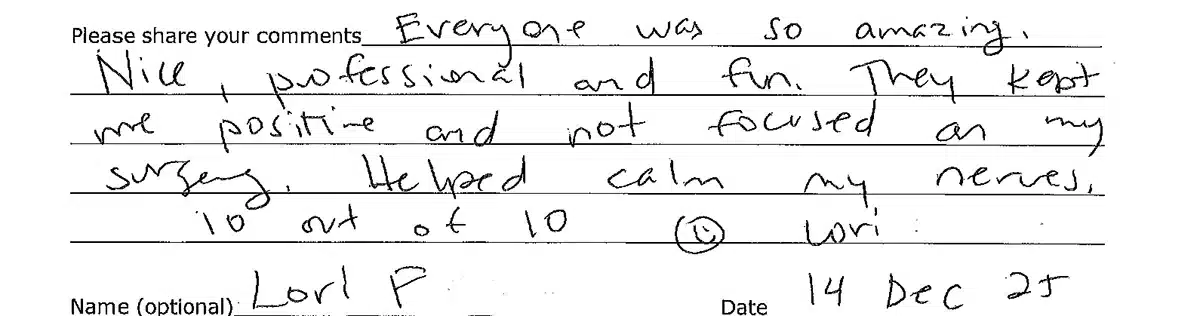 Please share your comments Everyone was so amazing.
Nice, professional and fun. They kept
me positive and not focused on my
surgery. Helped calm my nerves.
10 out of 10 ☺ Lori
Name (optional): Lori P Date 14 Dec 25